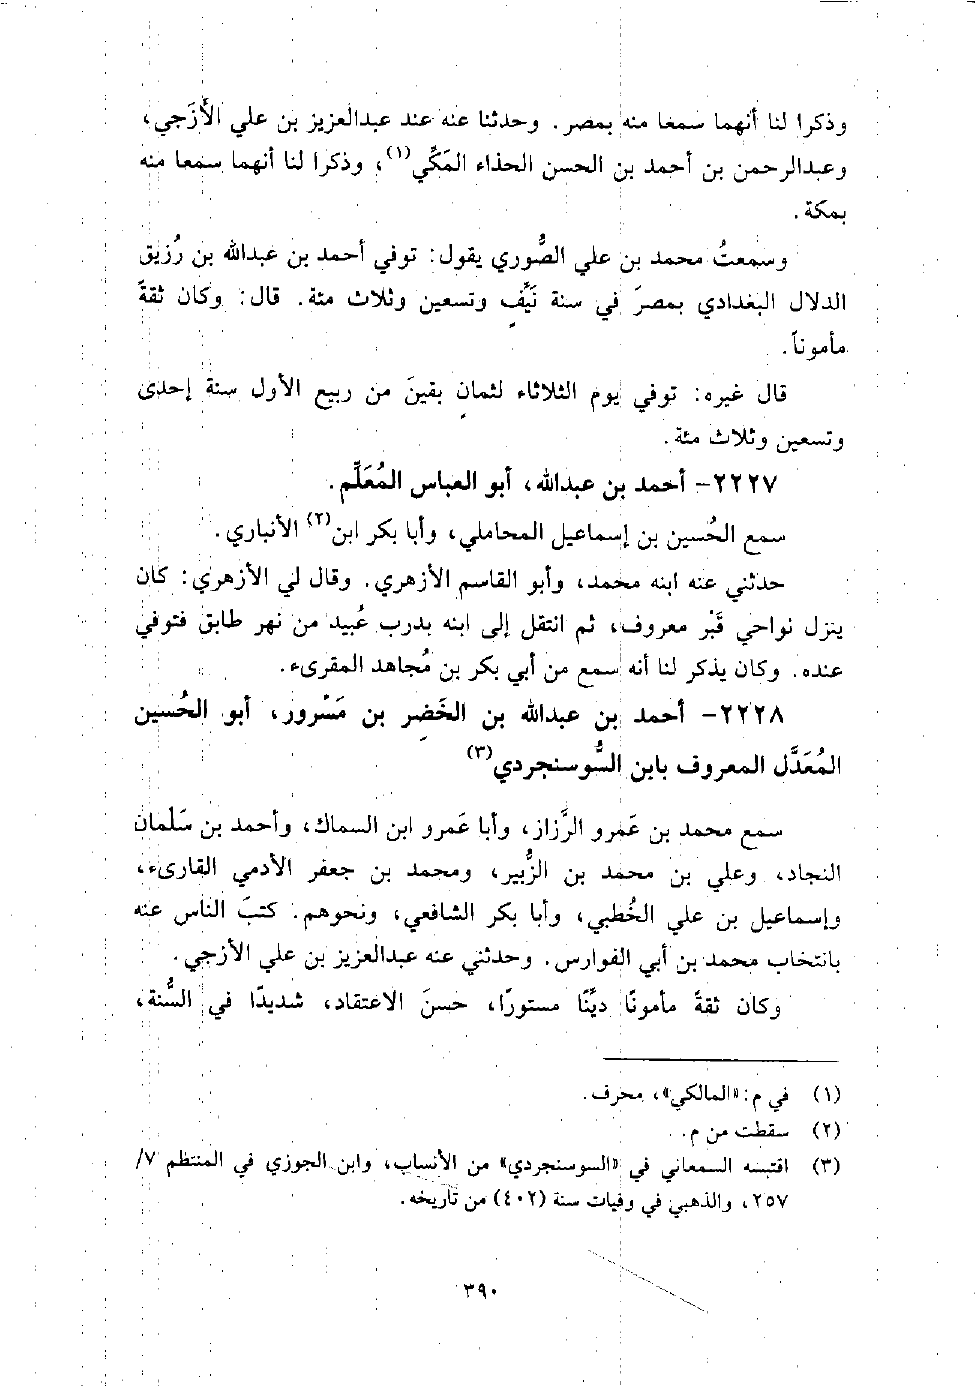 وذكرا لنا أنهما سمعا منه بمصر. وحدثنا عنه عند عبدالعزيز بن علي الأَزَجي،
وعبدالرحمن بن أحمد بن الحسن الحذاء المَكِّي(١)، وذكرا لنا أنهما سمعا منه
بمكة.
وسمعتُ محمد بن علي الصُّوري يقول: توفي أحمد بن عبدالله بن رُزيق
الدلال البغدادي بمصرَ في سنة نَيِّفٍ وتسعين وثلاث مئة. قال: وكان ثقةً
مأموناً.
قال غيره: توفي يوم الثلاثاء لثمانٍ بقينَ من ربيع الأول سنة إحدى
وتسعين وثلاث مئة.
٢٢٢٧- أحمد بن عبدالله، أبو العباس المُعَلِّم.
سمع الحُسين بن إسماعيل المحاملي، وأبا بكر ابن(٢) الأنباري.
حدثني عنه ابنه محمد، وأبو القاسم الأزهري. وقال لي الأزهري: كان
ينزل نواحي قَبْر معروف، ثم انتقل إلى ابنه بدرب عُبيد من نهر طابق فتوفي
عنده. وكان يذكر لنا أنه سمع من أبي بكر بن مُجاهد المقرىء.
٢٢٢٨- أحمد بن عبدالله بن الخَضِر بن مَسْرور، أبو الحُسين
المُعَدَّل المعروف بابن السُّوسنجردي(٣)
سمع محمد بن عَمرو الرَّزاز، وأبا عَمرو ابن السماك، وأحمد بن سَلْمان
النجاد، وعلي بن محمد بن الزُّبير، ومحمد بن جعفر الأدمي القارىء،
وإسماعيل بن علي الخُطبي، وأبا بكر الشافعي، ونحوهم. كتبَ الناس عنه
بانتخاب محمد بن أبي الفوارس. وحدثني عنه عبدالعزيز بن علي الأزجي.
وكان ثقةً مأمونًا ديِّنًا مستورًا، حسنَ الاعتقاد، شديدًا في السُّنة،
(١) في م: «المالكي»، محرف.
(٢) سقطت من م.
(٣) اقتبسه السمعاني في «السوسنجردي» من الأنساب، وابن الجوزي في المنتظم ٧/
٢٥٧، والذهبي في وفيات سنة (٤٠٢) من تاريخه.
٣٩٠